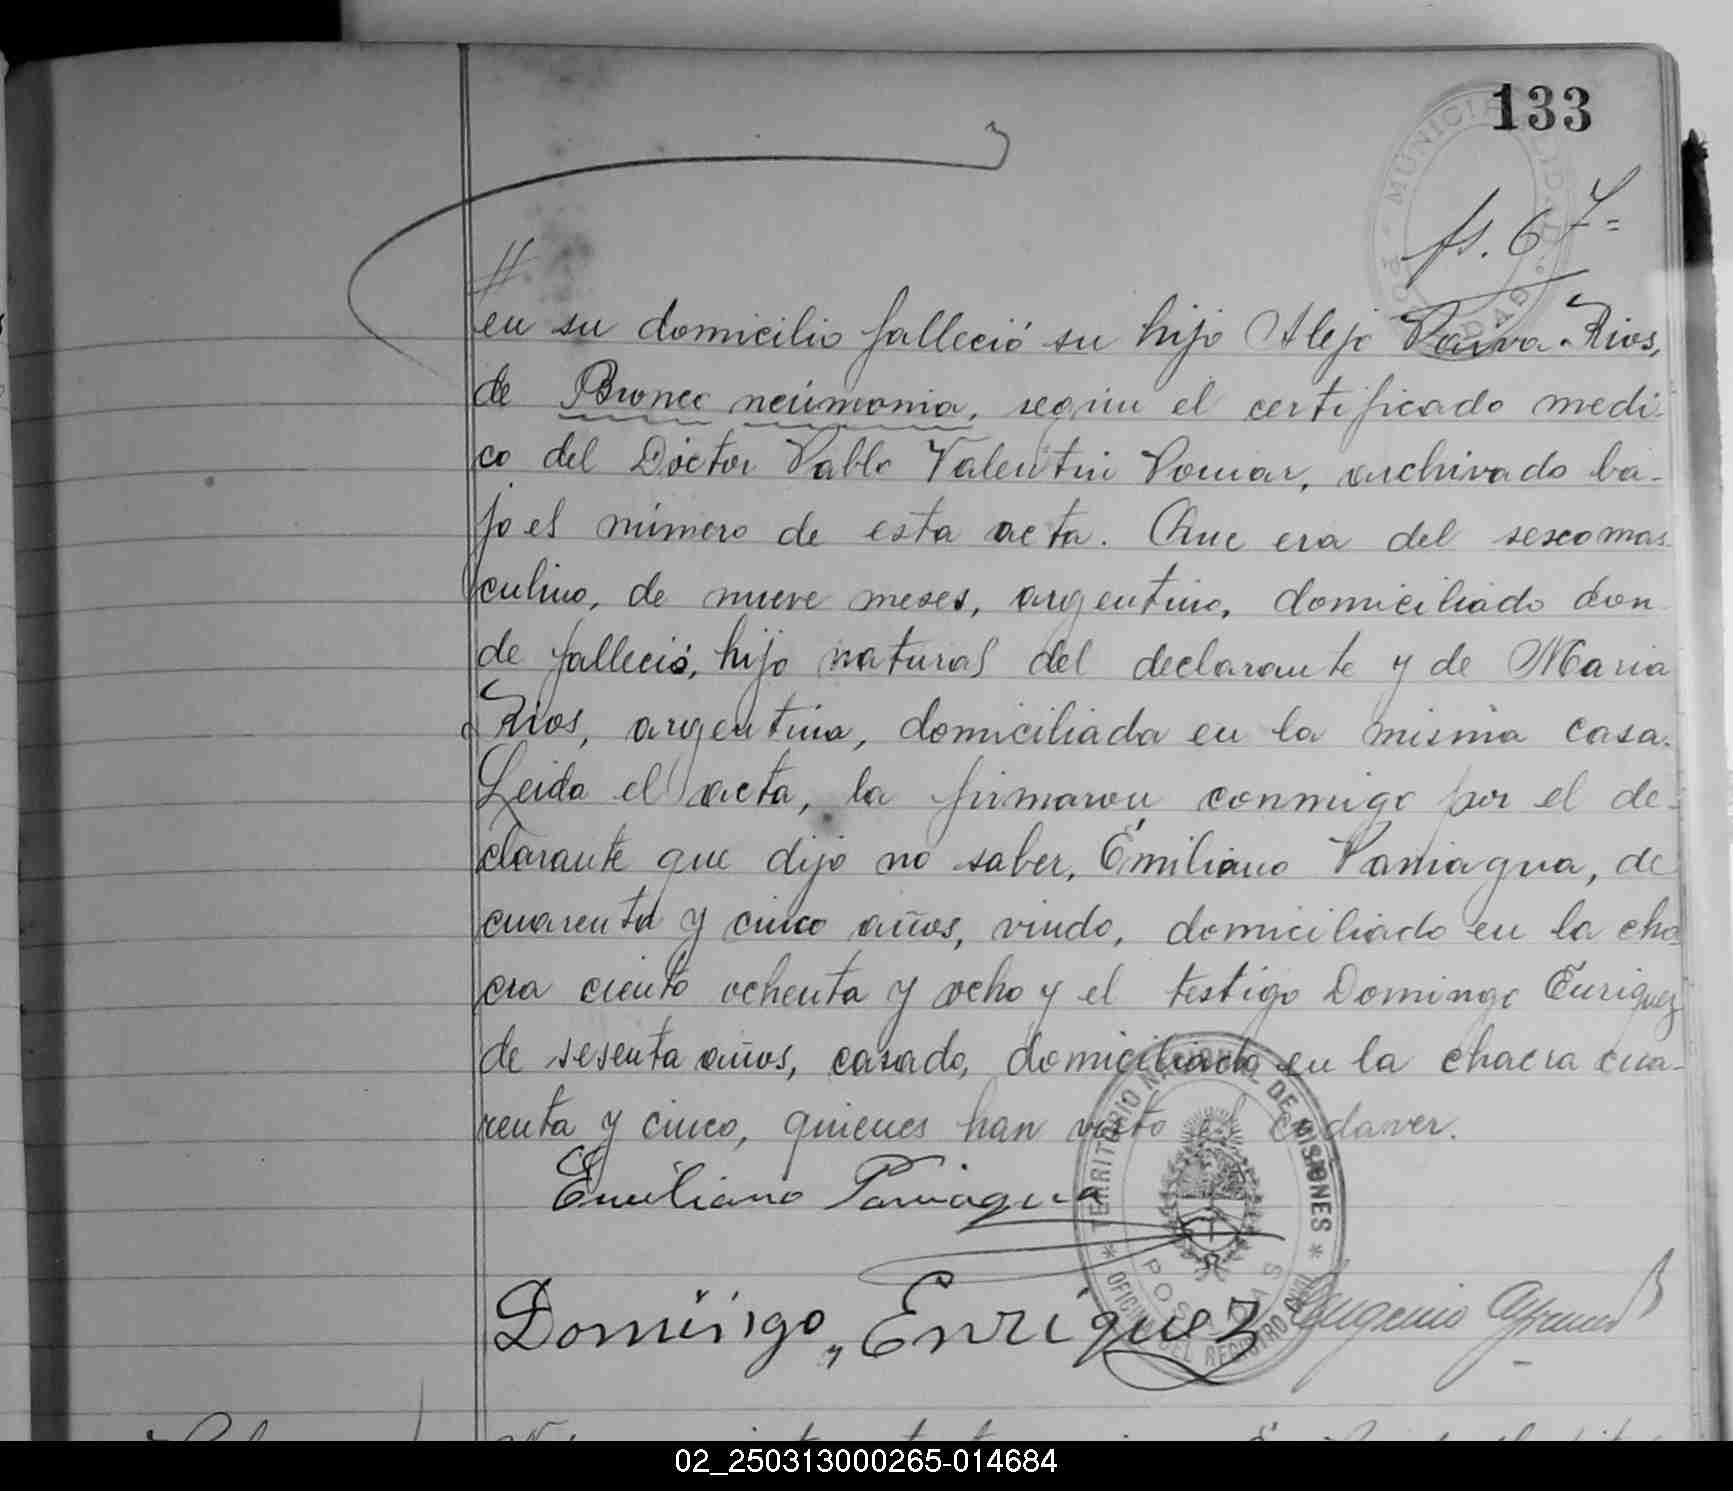 133
fs. 67=
en su domicilio falleció su hijo Alejo Paiva Rios,
de Bronco neúmonia, segun el certificado medi-
co del Doctor Pablo Valentin Pomar, archivado ba-
jo el número de esta acta. Que era del sexo mas
culino, de nueve meses, argentino, domiciliado don
de falleció, hijo natural del declarante y de Maria
Rios, argentina, domiciliada en la misma casa.
Leida el acta, la firmaron conmigo por el de-
clarante que dijo no saber, Emiliano Paniagua, de
cuarenta y cinco años, viudo, domiciliado en la cha
cra ciento ochenta y ocho y el testigo Domingo Enriquez
de sesenta años, casado, domiciliado en la chacra cua-
renta y cinco, quienes han visto el cadaver.
Emiliano Paniagua
TERRITORIO NACIONAL DE MISIONES
POSADAS
OFICINA DEL REGISTRO CIVIL
Domingo Enriquez
Eugenio
02_250313000265-014684